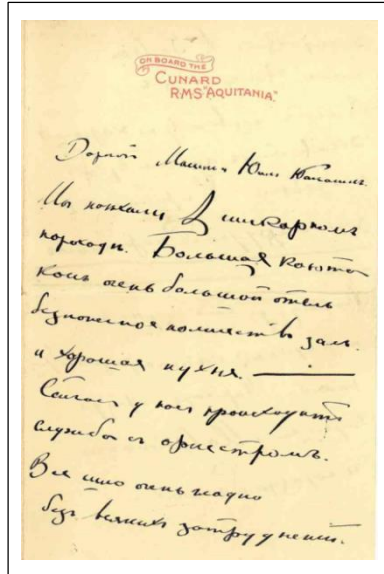 ON BOARD THE
CUNARD
RMS "AQUITANIA."
Дорогой
Мы на шикарномъ
пароходѣ. Большая каюта
какъ очень большой отель
количество залъ.
и хорошая кухня. —
Сейчасъ у насъ происходитъ
служба съ оркестромъ.
Все шло очень гладко
безъ всякихъ затрудненій.